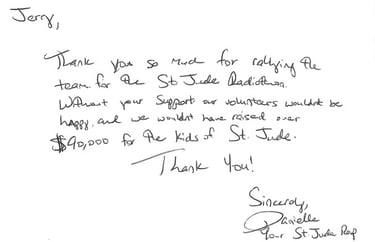 Jerry,
Thank you so much for rallying the
team for the St Jude Radiothon.
Without your support our volunteers wouldnt be
happy, and we wouldnt have raised over
$90,000 for the kids of St. Jude.
Thank You!
Sincerely,
Danielle
Your St Jude Rep